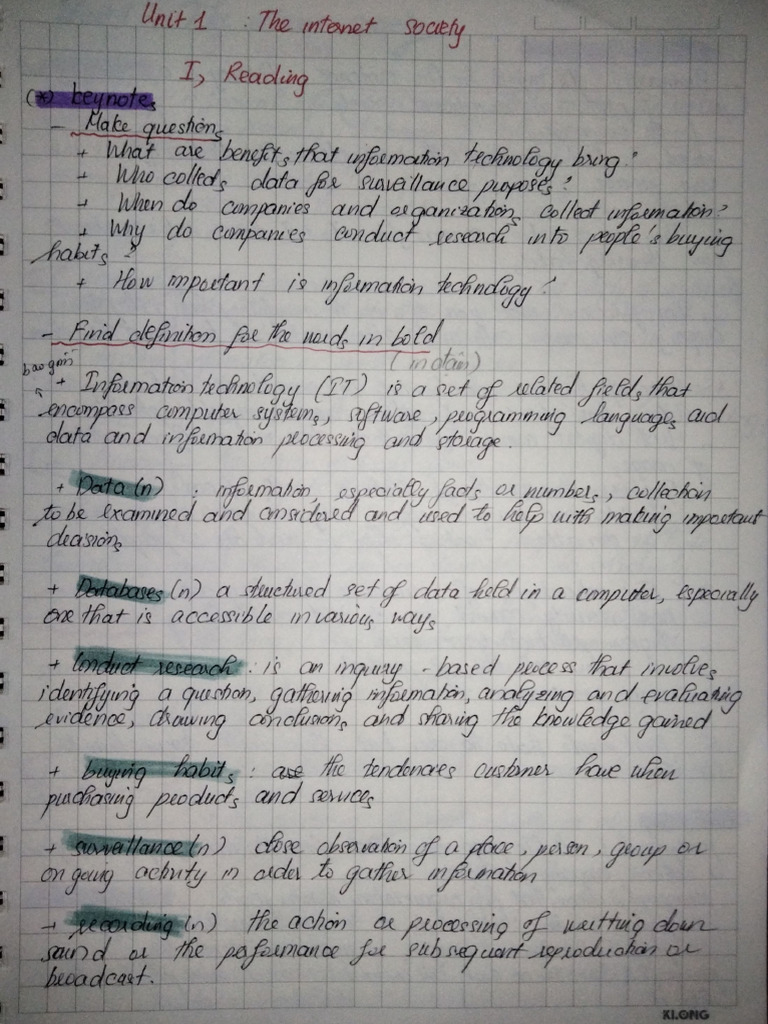 Unit 1 : The internet society
I, Reading
(*) keynotes
- Make questions
+ What are benefits that information technology bring?
+ Who collects data for surveillance proposes?
+ When do companies and organizations collect information?
+ Why do companies conduct research into people's buying
habits?
+ How important is information technology?
- Find definition for the words in bold
(in đậm)
bao gồm
+ Information technology (IT) is a set of related fields that
encompass computer systems, software, programming languages and
data and information processing and storage.
+ Data (n) : information, especially facts or numbers, collection
to be examined and considered and used to help with making important
decisions
+ Databases (n) a structured set of data held in a computer, especially
one that is accessible in various ways
+ Conduct research : is an inquiry - based process that involves
identifying a question, gathering information, analyzing and evaluating
evidence, drawing conclusions and sharing the knowledge gained
+ buying habits : are the tendencies customer have when
purchasing products and services
+ surveillance (n) close observation of a place, person, group or
on going activity in order to gather information
+ recording (n) the action or processing of writting down
sound or the performance for subsequant reproduction or
broadcast.
KLONG